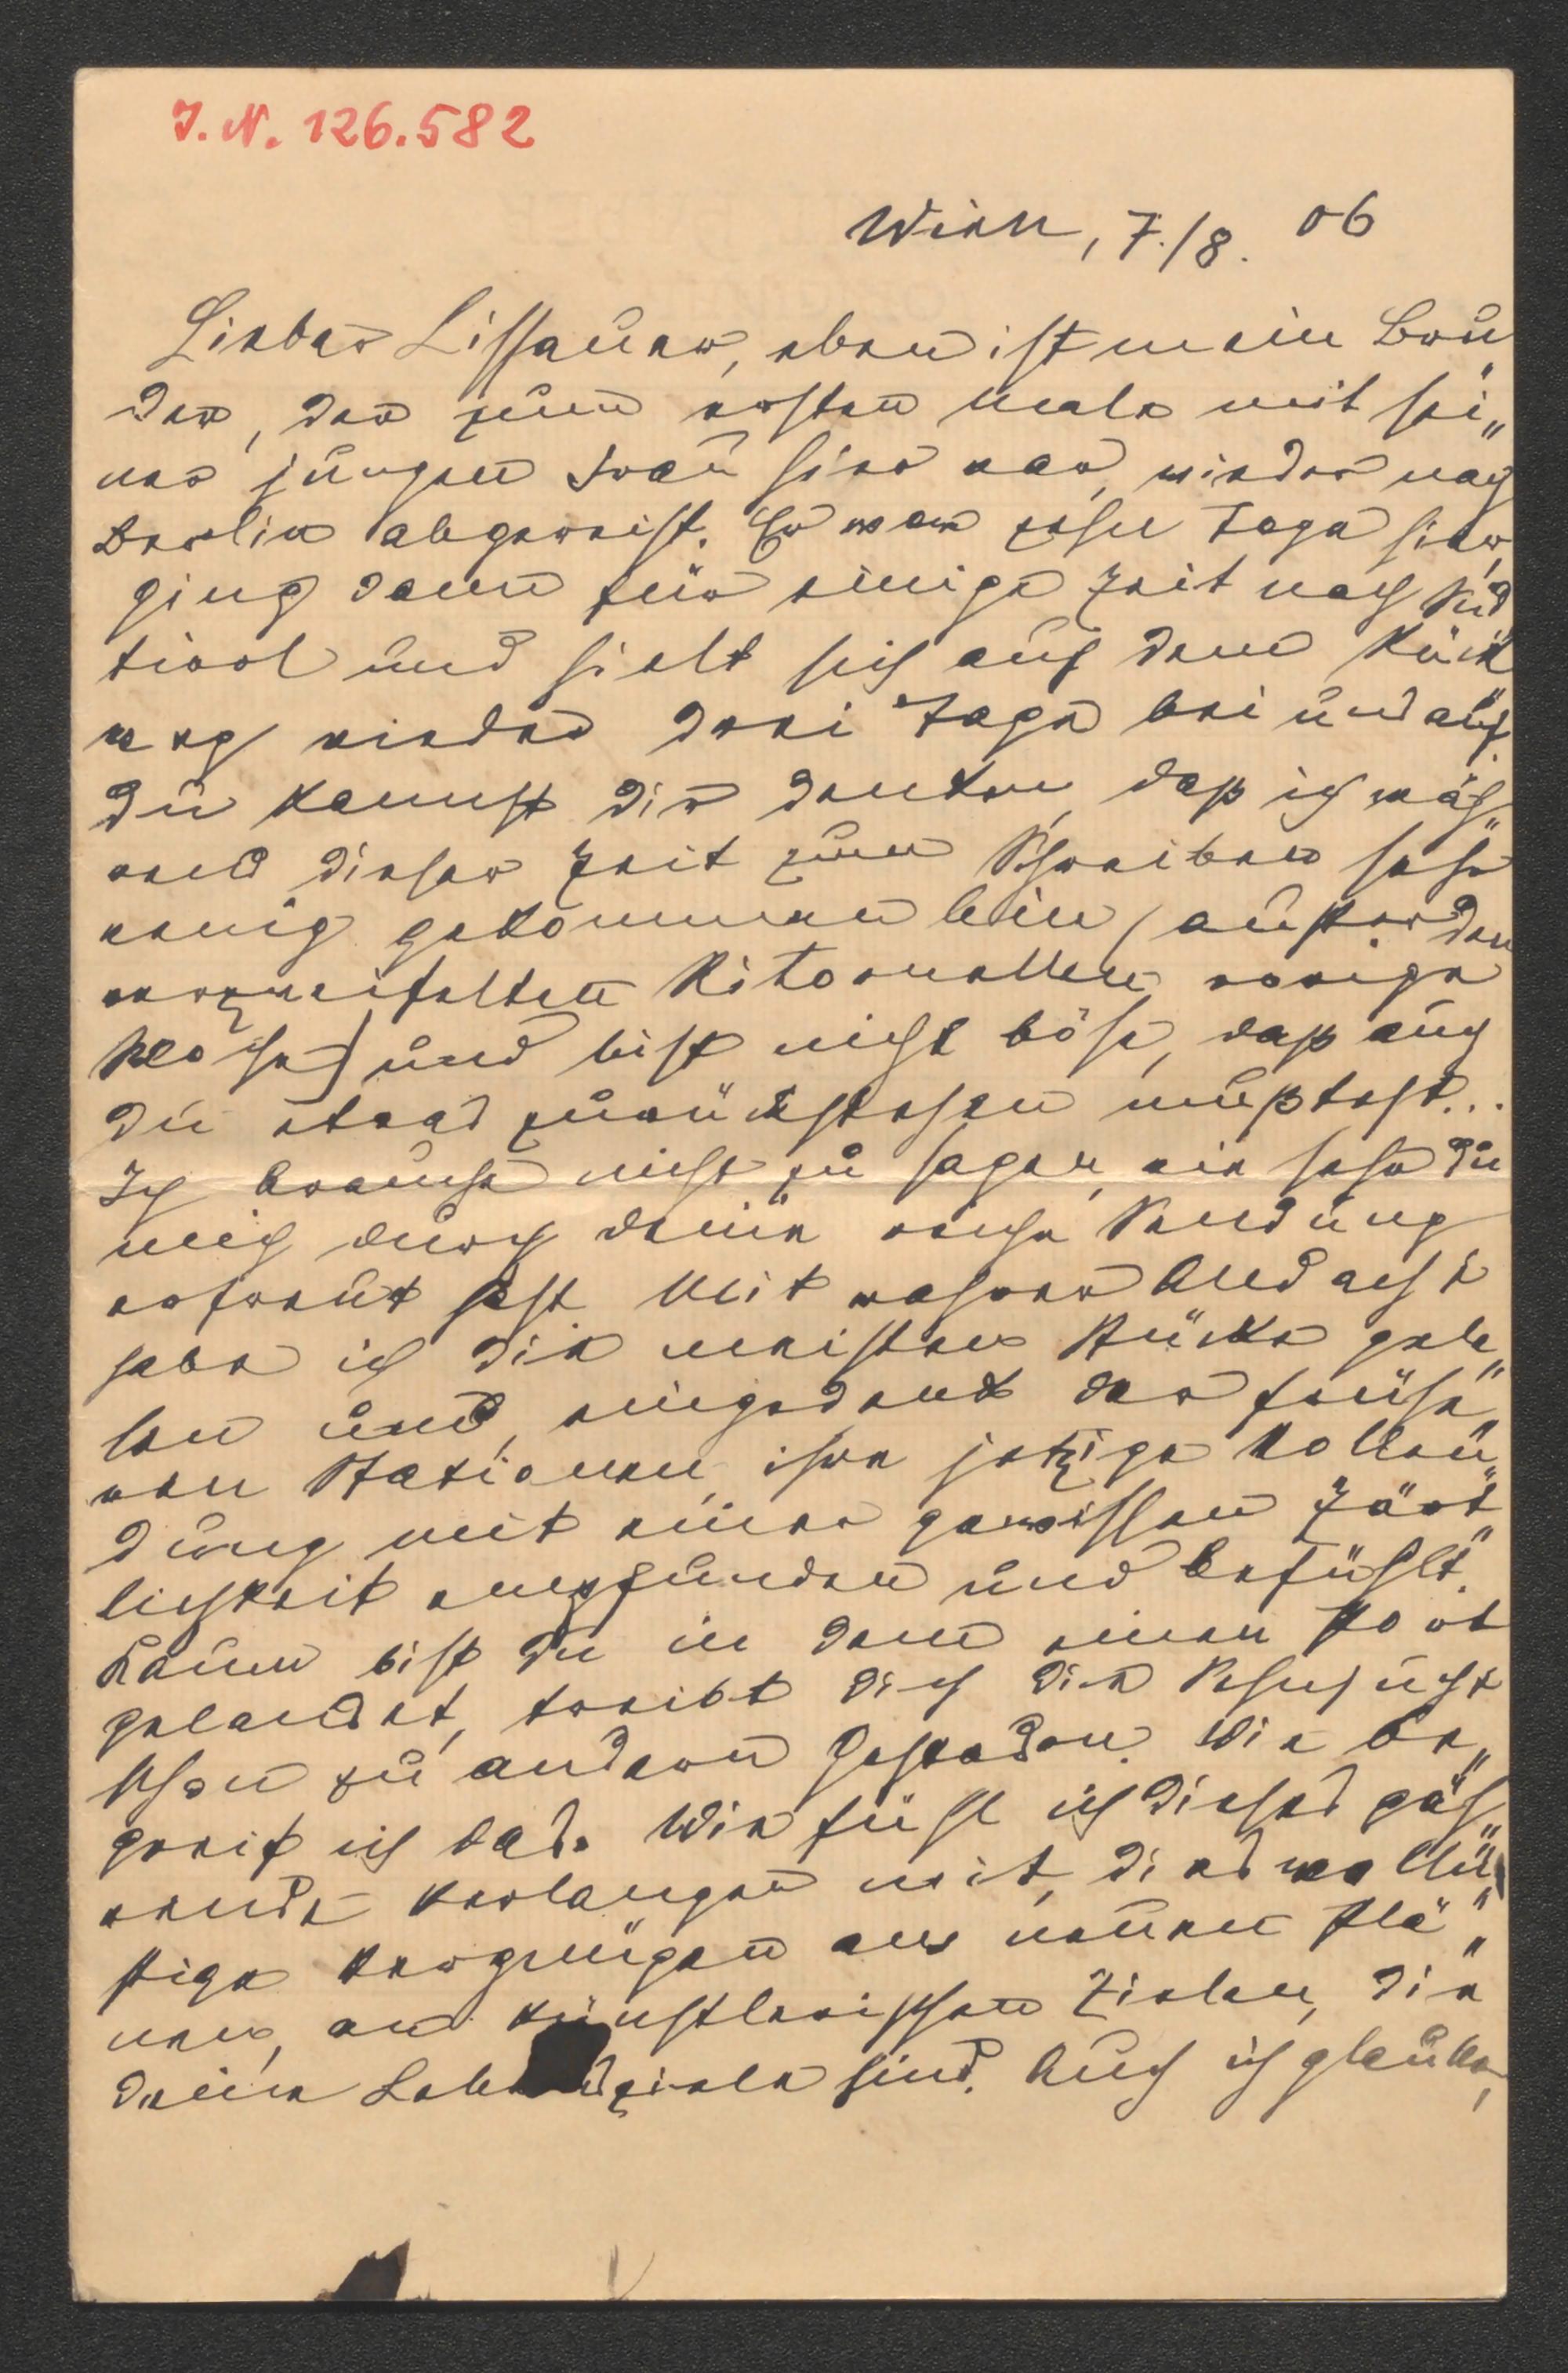 I. N. 126.582
Wien, 7./8. 06
Lieber Lissauer, eben ist mein Bru„
der, der zum ersten Male mit sei„
ner jungen Frau hier war, wieder nach
Berlin abgereist. Er war zehn Tage hier,
ging dann für einige Zeit nach Süd
tirol und hielt sich auf dem Rück„
weg wieder drei Tage bei uns auf.
Du kannst dir denken, daß ich wäh„
rend dieser Zeit zum Schreiben sehr
wenig gekommen bin (außer den
verzweifelten Ritornellen voriger
Woche) und bist nicht böse, daß auch
Du etwas zurückstehen mußtest...
Ich brauche nicht zu sagen, wie sehr Du
mich durch deine reiche Sendung
erfreut hast. Mit wahrer Andacht
habe ich die meisten Stücke gele„
sen und, eingedenk der frühe„
ren Stationen, ihre jetzige Vollen„
dung mit einer gewissen Zärt„
lichkeit empfunden und befühlt.
Kaum bist Du in dem einen Port
gelandet, treibt dich die Sehnsucht
schon zu andern Gestaden. Wie be„
greif ich das. Wie fühl ich dieses gäh„
rende Verlangen mit, dies wollü„
stige Vergnügen an neuen Plä„
nen, an künstlerischen Zielen, die
deine Lebensziele sind. Auch ich glaube,